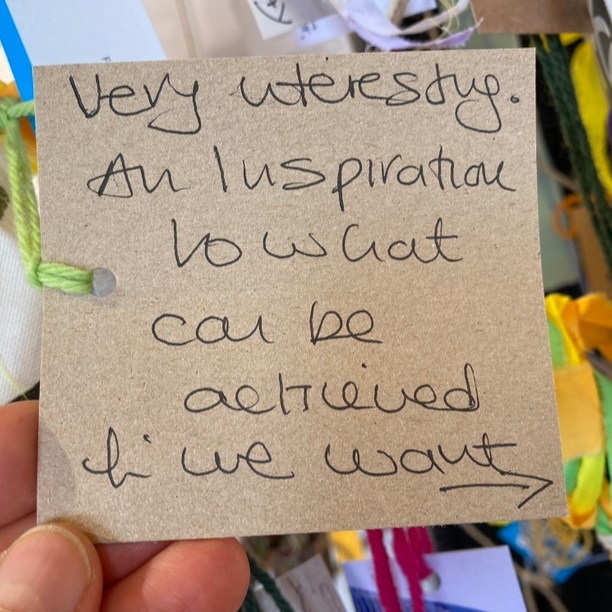 Very interesting.
An Inspiration
to what
can be
achieved
if we want